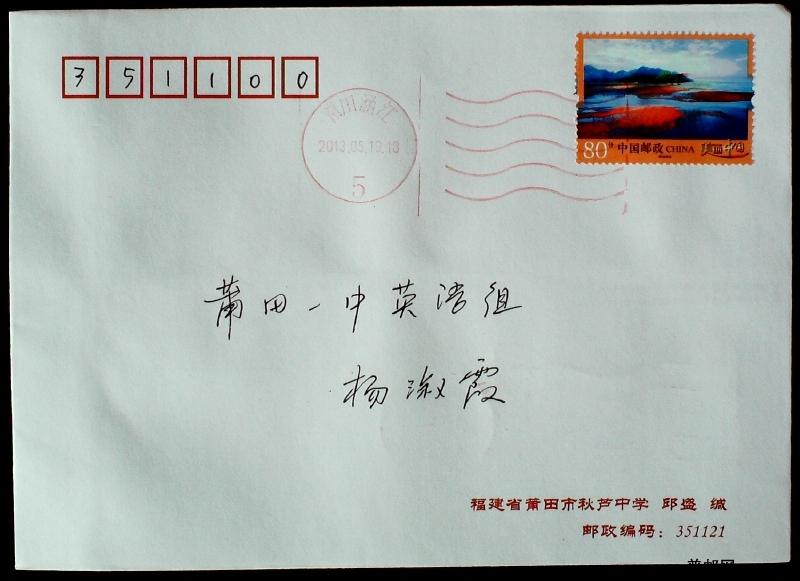 351100
涵江
2013.05.19.18
5
80分 中国邮政 CHINA 美丽中国
莆田一中英语组
杨淑霞
福建省莆田市秋芦中学 邱盛 缄
邮政编码：351121